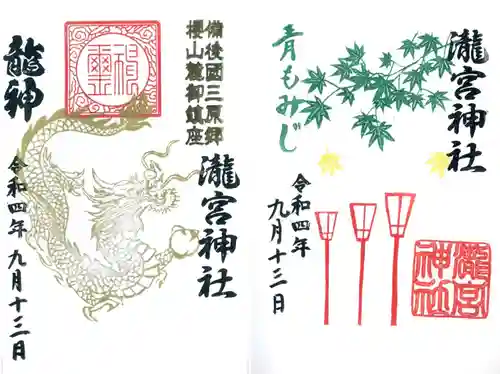 備後國三原郷
櫻山麓御鎮座
瀧宮神社
龍神
令和四年九月十三日
瀧宮神社
青もみじ
令和四年
九月十三日
瀧宮
神社